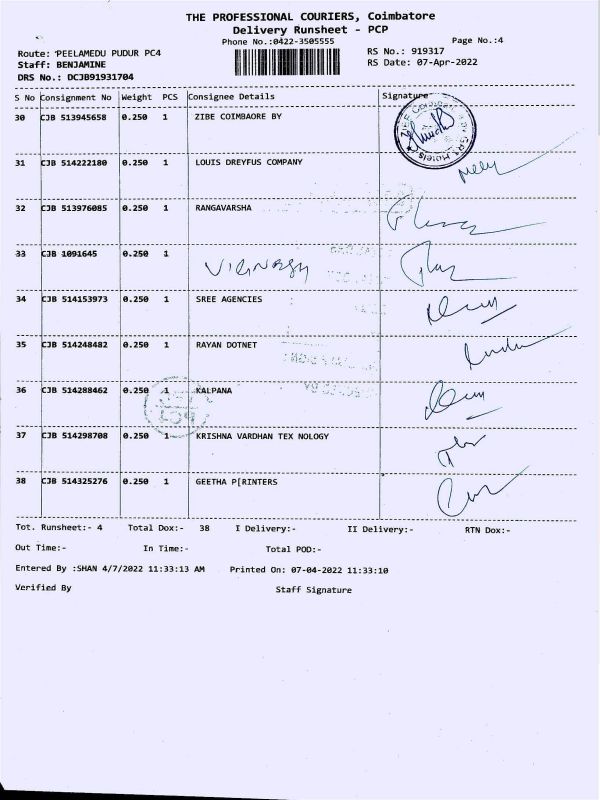 THE PROFESSIONAL COURIERS, Coimbatore
Delivery Runsheet - PCP
Phone No.:0422-3505555
Page No.:4
Route: PEELAMEDU PUDUR PC4
RS No.: 919317
Staff: BENJAMINE
RS Date: 07-Apr-2022
DRS No.: DCJB91931704
S No Consignment No Weight PCS Consignee Details Signature
30 CJB 513945658 0.250 1 ZIBE COIMBAORE BY
31 CJB 514222180 0.250 1 LOUIS DREYFUS COMPANY
32 CJB 513976085 0.250 1 RANGAVARSHA
33 CJB 1091645 0.250 1
34 CJB 514153973 0.250 1 SREE AGENCIES
35 CJB 514248482 0.250 1 RAYAN DOTNET
36 CJB 514288462 0.250 1 KALPANA
37 CJB 514298708 0.250 1 KRISHNA VARDHAN TEX NOLOGY
38 CJB 514325276 0.250 1 GEETHA P[RINTERS
Tot. Runsheet:- 4 Total Dox:- 38 I Delivery:- II Delivery:- RTN Dox:-
Out Time:- In Time:- Total POD:-
Entered By :SHAN 4/7/2022 11:33:13 AM Printed On: 07-04-2022 11:33:10
Verified By Staff Signature